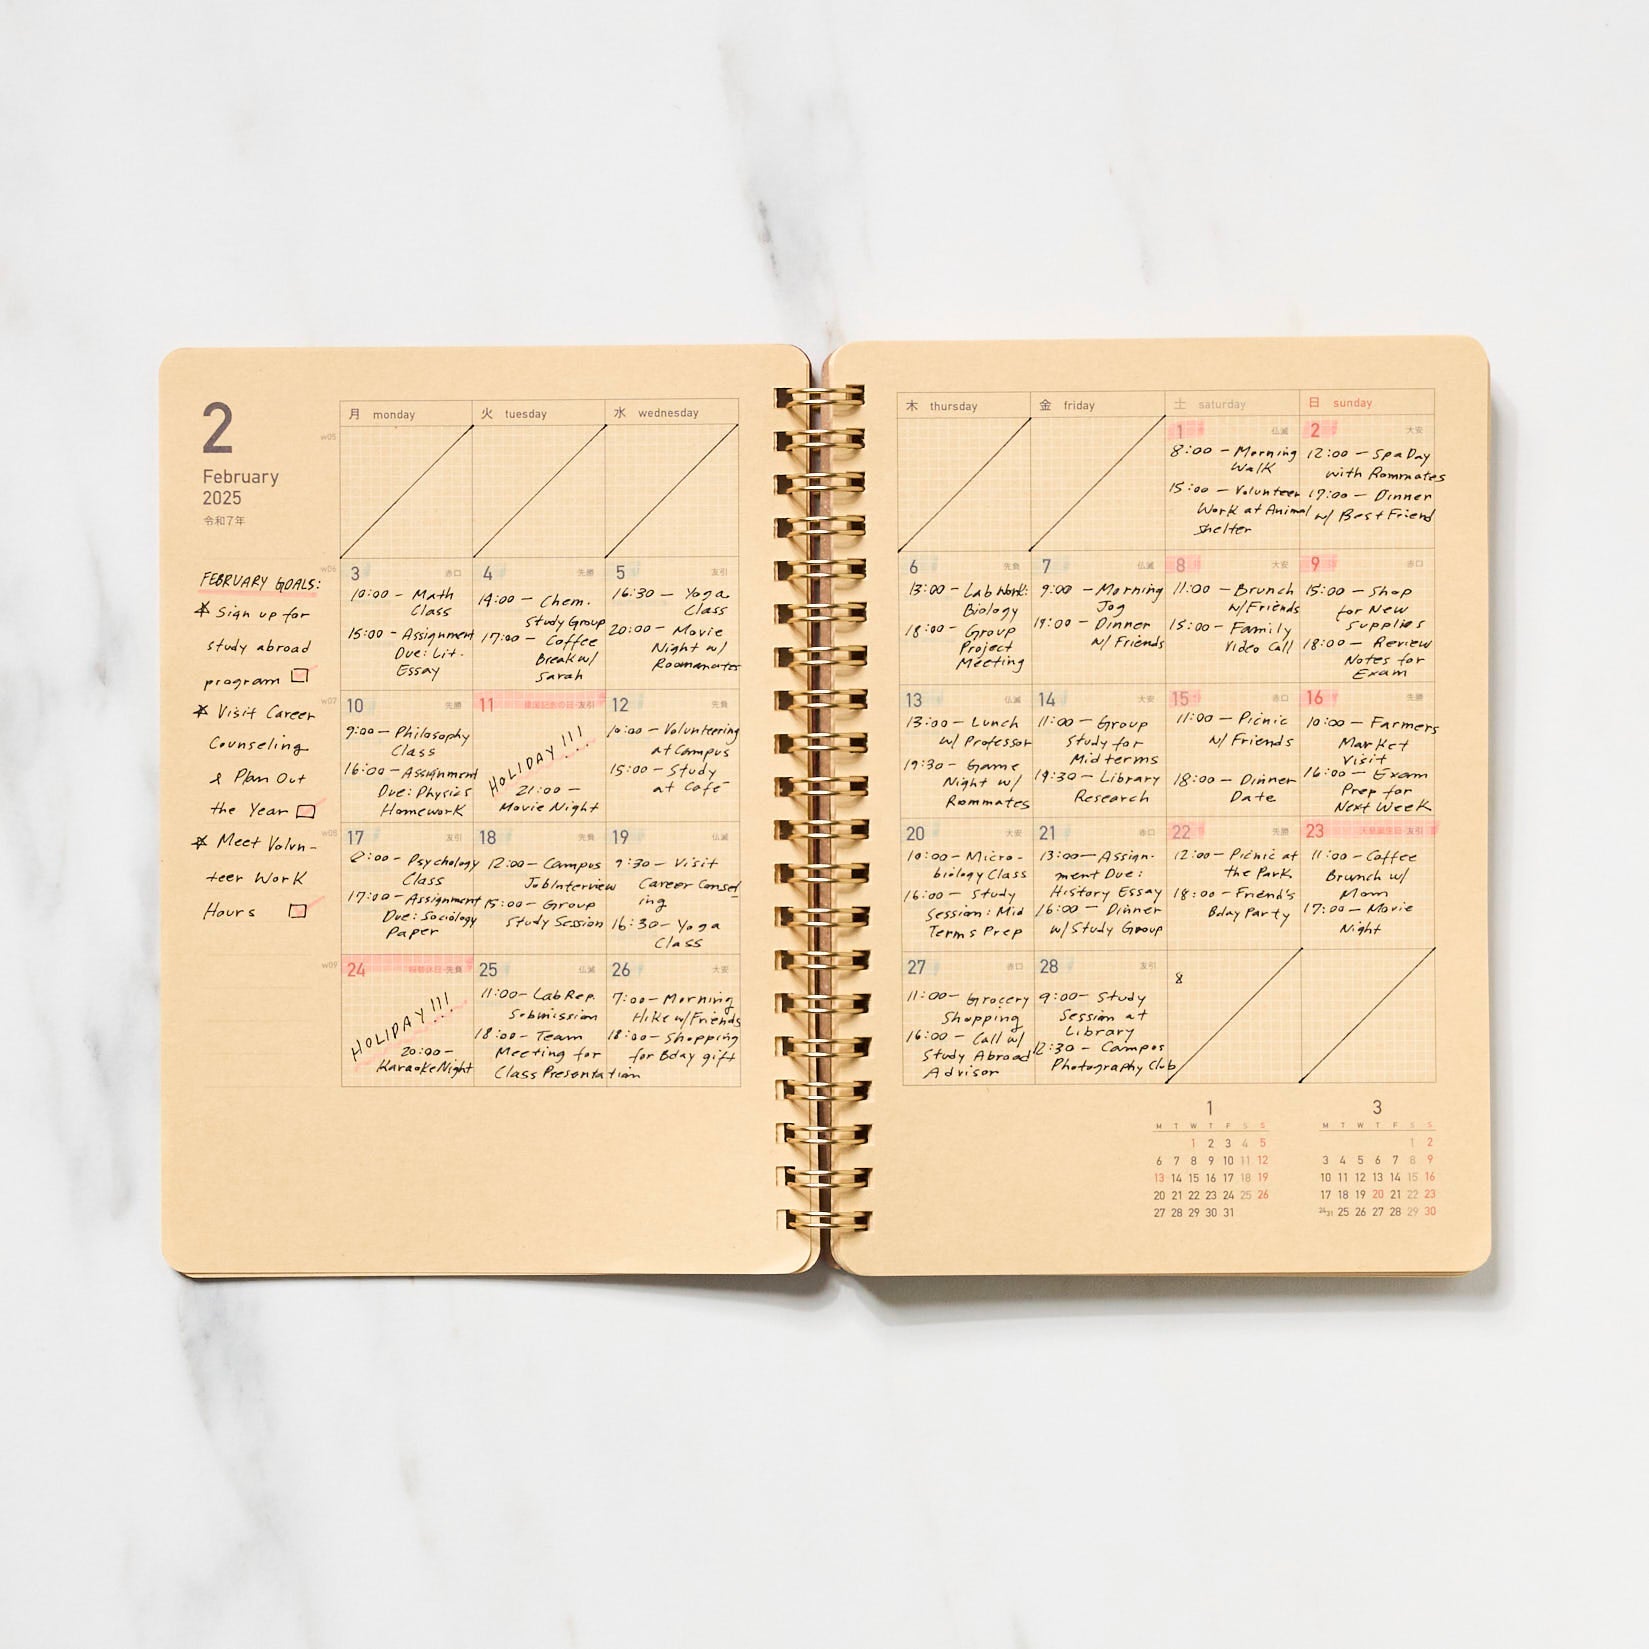 2
February
2025
令和7年
FEBRUARY GOALS:
☆ Sign up for
study abroad
program
☆ Visit Career
Counseling
& Plan Out
the Year
☆ Meet Volun-
teer Work
Hours
月 monday
火 tuesday
水 wednesday
w05
w06
3 赤口
10:00 - Math
Class
15:00 - Assignment
Due: Lit.
Essay
4 先勝
14:00 - Chem.
Study Group
17:00 - Coffee
Break w/
Sarah
5 友引
16:30 - Yoga
Class
20:00 - Movie
Night w/
Roomamates
w07
10 先勝
9:00 - Philosophy
Class
16:00 - Assignment
Due: Physics
Homework
11 建国記念の日・友引
HOLIDAY!!!
21:00 -
Movie Night
12 先負
10:00 - Volunteering
at Campus
15:00 - Study
at Café
w08
17 友引
8:00 - Psychology
Class
17:00 - Assignment
Due: Sociology
Paper
18 先負
12:00 - Campus
Job Interview
15:00 - Group
Study Session
19 仏滅
9:30 - Visit
Career Consel
ing
16:30 - Yoga
Class
w09
24 振替休日・先負
HOLIDAY!!!
20:00 -
Karaoke Night
25 仏滅
11:00 - Lab Rep.
Submission
18:00 - Team
Meeting for
Class Presentation
26 大安
7:00 - Morning
Hike w/ Friends
18:00 - Shopping
for Bday gift
木 thursday
金 friday
土 saturday
日 sunday
1 仏滅
8:00 - Morning
Walk
15:00 - Volunteer
Work at Animal
Shelter
2 大安
12:00 - Spa Day
with Rommates
17:00 - Dinner
w/ Best Friend
6 先負
13:00 - Lab Work:
Biology
18:00 - Group
Project
Meeting
7 仏滅
9:00 - Morning
Jog
19:00 - Dinner
w/ Friends
8 大安
11:00 - Brunch
w/ Friends
15:00 - Family
Video Call
9 赤口
15:00 - Shop
for New
Supplies
18:00 - Review
Notes for
Exam
13 仏滅
13:00 - Lunch
w/ Professor
19:30 - Game
Night w/
Rommates
14 大安
11:00 - Group
Study for
Midterms
19:30 - Library
Research
15 赤口
11:00 - Picnic
w/ Friends
18:00 - Dinner
Date
16 先勝
10:00 - Farmers
Market
Visit
16:00 - Exam
Prep for
Next Week
20 大安
10:00 - Micro-
biology Class
16:00 - Study
Session: Mid
Terms Prep
21 赤口
13:00 - Assign-
ment Due:
History Essay
16:00 - Dinner
w/ Study Group
22 先勝
12:00 - Picnic at
the Park
18:00 - Friend's
Bday Party
23 天皇誕生日・友引
11:00 - Coffee
Brunch w/
Mom
17:00 - Movie
Night
27 赤口
11:00 - Grocery
Shopping
16:00 - Call w/
Study Abroad
Advisor
28 友引
9:00 - Study
Session at
Library
12:30 - Campus
Photography Club
8
1
M T W T F S S
1 2 3 4 5
6 7 8 9 10 11 12
13 14 15 16 17 18 19
20 21 22 23 24 25 26
27 28 29 30 31
3
M T W T F S S
1 2
3 4 5 6 7 8 9
10 11 12 13 14 15 16
17 18 19 20 21 22 23
24/31 25 26 27 28 29 30